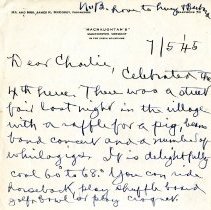 MR. AND MRS. JAMES R.
"MACNAUGHTAN'S"
7/5 45
Dear Charlie,
Celebrated the
4th here. There was a street
fair last night in the village
with a raffle for a pig,
band concert and a number of
whirligigs. It is delightfully
cool 60 to 68°. You can ride
horseback, play shuffle board
golf, bowl or play croquet.